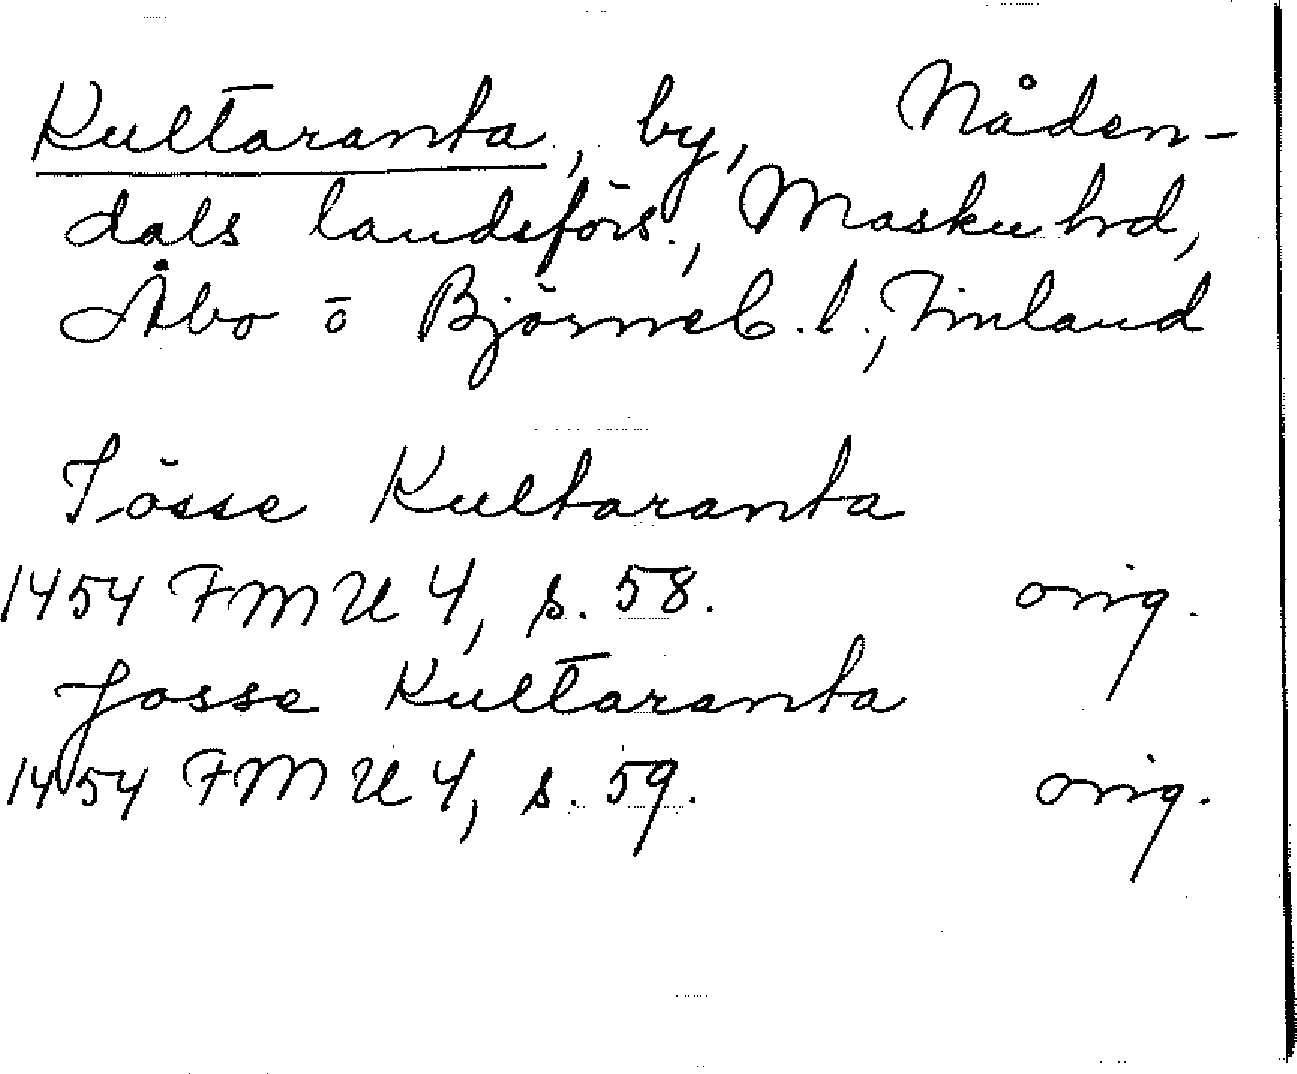 Kultaranta, by, Nåden-
dals landsförs., Masku hrd,
Åbo ö Björneb. l., Finland
Jösse Kultaranta
1454 FMU 4, s. 58. orig.
Josse Kultaranta
1454 FMU 4, s. 59. orig.